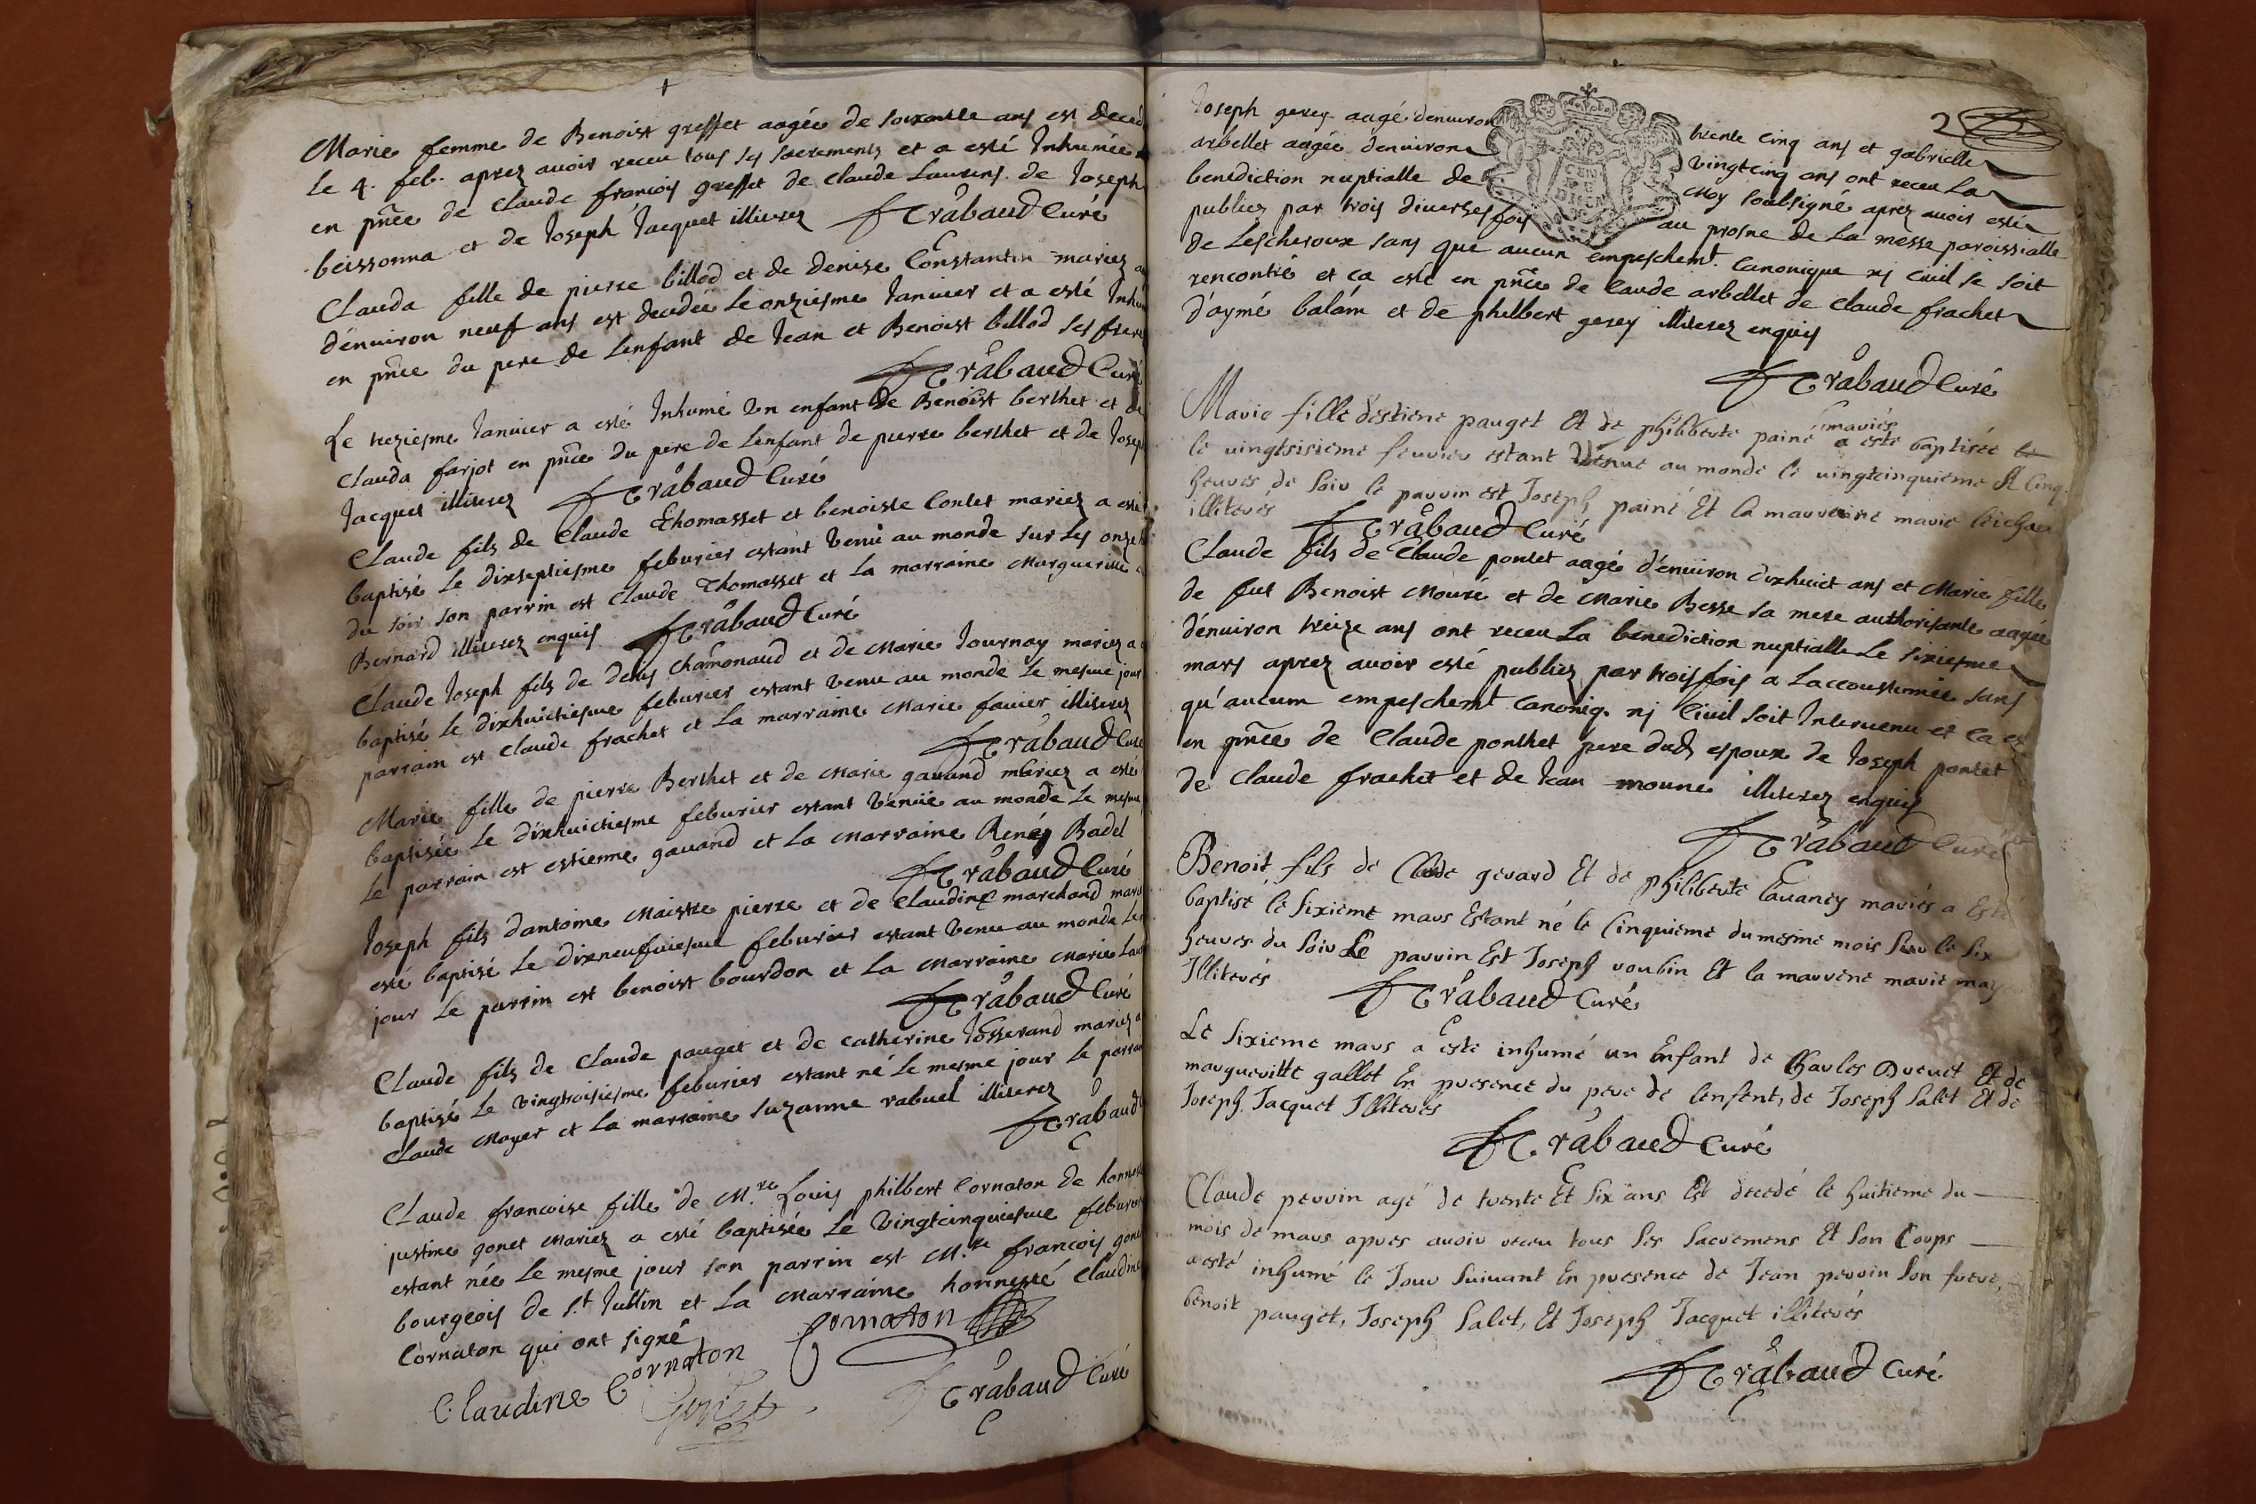 Marie femme de Benoist greffet aagée de soixante ans est deced
le 4. feb. aprez avoir receu tous ses sacrements et a esté Inhumée
en pñce de Claude francois greffet de Claude Laurens de Joseph
beissonna et de Joseph Jacquet illiterez Trabaud Curé
Clauda fille de pierre billod et de denise Constantin mariez
d'environ neuf ans est decedée le onziesme Janvier et a esté Inhu
en pñce du pere de l'enfant de Jean et Benoist billod ses frere
Trabaud Curé
Le treziesme Janvier a esté Inhumé un enfant de Benoist berthet et de
Clauda farjot en pñce du pere de lenfant de pierre berthet et de Josep
Jacquet illiterez Trabaud Curé
Claude fils de Claude Thomasset et benoiste Contet mariez a esté
baptisé le dixseptiesme feburier estant venu au monde sur les onze h
du soir son parrin est Claude Thomasset et la marraine Marguerite
Bernard illiterez enquis Trabaud Curé
Claude Joseph fils de denis Chamonaud et de Marie Journay mariez a
baptisé le dixhuictiesme feburier estant venu au monde le mesme jour
parrain est Claude frachet et la marraine Marie favier illiterez
Trabaud Curé
Marie fille de pierre Berthet et de Marie gavand mariez a esté
baptisée le dixhuictiesme feburier estant venüe au monde le mesme
le parrain est estienne gavand et la Marraine Renéé Badel
Trabaud Curé
Joseph fils dantoine Maistre pierre et de Claudine marchand mari
esté baptisé le dixneufviesme feburier estant venu au monde le
jour le parrin est benoist bourdon et la Marraine Marie
Trabaud Curé
Claude fils de Claude pauget et de Catherine Josserand mariez a
baptisé le vingtroisiesme feburier estant né le mesme jour le parrain
Claude Moyer et la marraine suzanne rabuel illiterez
Trabaud
Claude francoise fille de M.re Louis philbert Cornaton de honneste
justine gonet Mariez a esté baptisée le vingtcinquiesme feburier
estant née le mesme jour son parrin est M.re francois gone
bourgeois de s.t Jullin et la Marraine honnesté Claudine
Cornaton qui ont signé Cornaton
Claudine Cornaton
Gonet Trabaud Curé
2
Joseph gerey aagé denviron trente cinq ans et gabrielle
arbellet aagée denviron vingtcinq ans ont receu la
benediction nuptialle de Moy soubsigné aprez avoir esté
publiez par trois diverses fois au prosne de la messe paroissialle
de Lescheroux sans que aucun empeschem.t Canonique nj Civil se soit
rencontré et ca esté en pñce de Caude arbellet de Claude frachet
d'aymé balám et de philbert gerey illiterez enquis
Trabaud Curé
Marie fille destiene pauget Et de philiberte painé mariés a este baptisée
le vingtsisieme fevrier estant venue au monde le vingtcinquieme A Cinq
heures de soir le parrin est Joseph painé Et la marreine marie
illiterés Trabaud Curé
Claude fils de Claude pontet aagé d'environ dixhuict ans et Marie fille
de fut Benoist Mouré et de Marie Besse sa mere authorisante aagée
d'environ treize ans ont receu la benediction nuptialle le sixiesme
mars aprez avoir esté publiez par trois fois a Laccoustumée sans
qu'aucum empeschemt Canoniq. nj Civil soit Intervenu et ca es
en pñce de Claude ponthet pere dud. espoux de Joseph pontet
de Claude frachet et de Jean moune illiterez enquis
Trabaud Curé
Benoit fils de Claude gerard Et de philiberte Cavaney mariés a Esté
baptisé le sixieme mars Estant né le Cinquieme du mesme mois sur le six
heures du soir Le parrin Est Joseph roubin Et la marrene marie may
Illiterés Trabaud Curé
Le sixieme mars a este inhumé un Enfant de Charles Drevet Et de
marguevitte gallet En presence du pere de lenfent, de Joseph Salet Et de
Joseph Jacquet Illiterés
Trabaud Curé
Claude perrin agé de trente Et six ans Est decedé le huitieme du
mois de mars apres avoir receu tous ses sacremens Et son Corps
a esté inhumé le Jour suivant En presence de Jean perrin son frere,
benoit pauget, Joseph Salet, Et Joseph Jacquet illiterés
Trabaud Curé